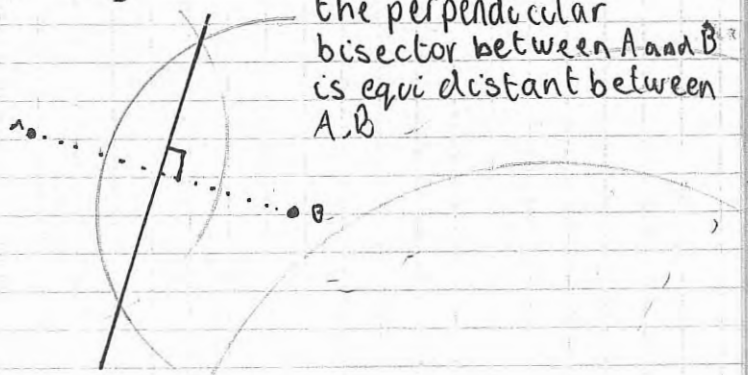 the perpendicular
bisector between A and B
is equi distant between
A, B
A
B